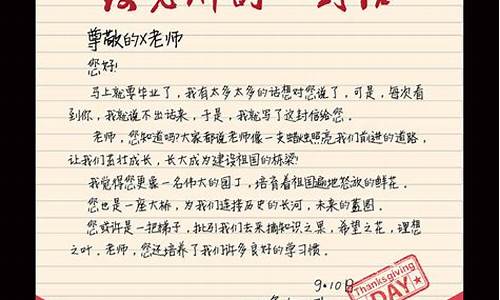 给老师的一封信
尊敬的X老师
您好!
马上就要毕业了，我有太多太多的话想对您说了，可是，每次看
到你，我就说不出话来，于是，我就写了这封信给您。
老师，您知道吗?大家都说老师像一支蜡烛照亮我们前进的道路，
让我们茁壮成长，长大成为建设祖国的栋梁!
我觉得您更像一名伟大的园丁，培育着祖国遍地怒放的鲜花。
您也是一座大桥，为我们连接历史的长河，未来的蓝图。
您或许是一把梯子，批列我们去采摘知识之果，希望之花，理想
之叶，老师，您还培养了我们许多良好的学习惯。
9.10日
Thanksgiving
DAY